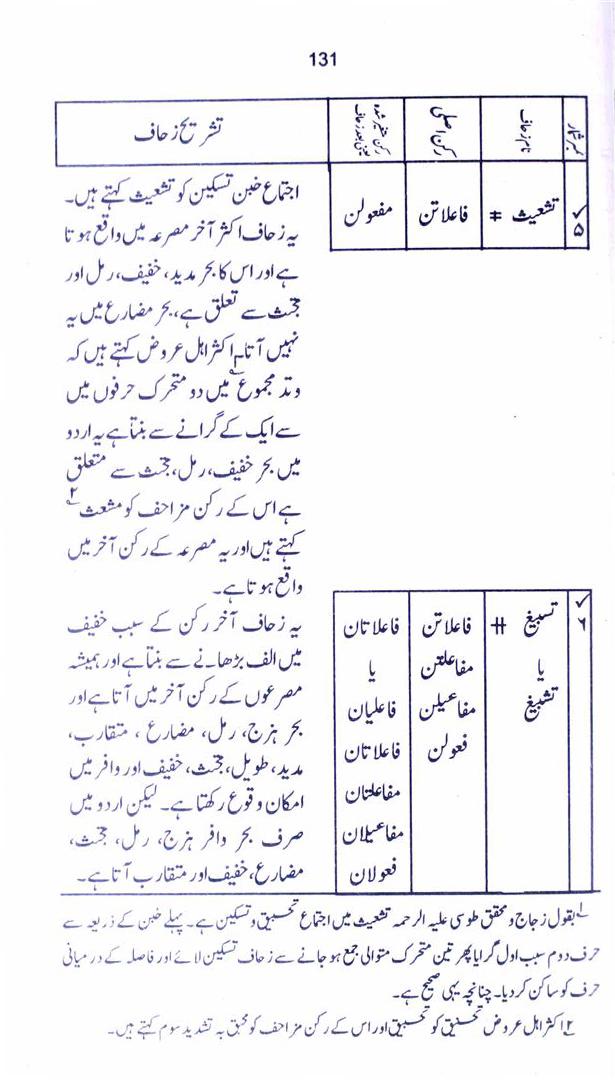 131
نمبر شمار
نام زحاف
رکن اصلی
رکن متغیر شدہ
یعنی بعد زحاف
تشریح زحاف
۵
تشعیث #
فاعلاتن
مفعولن
اجتماع خبن تسکین کو تشعیث کہتے ہیں۔
یہ زحاف اکثر آخر مصرعہ میں واقع ہوتا
ہے اور اس کا بحر مدید، خفیف، رمل اور
مجتث سے تعلق ہے، بحر مضارع میں یہ
نہیں آتا۔۱ اکثر اہل عروض کہتے ہیں کہ
وتد مجموع میں دو متحرک حرفوں میں
سے ایک کے گرانے سے بنتا ہے یہ اردو
میں بحر خفیف، رمل، مجتث سے متعلق
ہے اس کے رکن مزاحف کو مشعث۲
کہتے ہیں اور یہ مصرعہ کے رکن آخر میں
واقع ہوتا ہے۔
۶
تسبیغ #
یا
تشبیغ
فاعلاتن
مفاعلتن
مفاعیلن
فعولن
فاعلاتان
یا
فاعلیان
فاعلاتان
مفاعلتان
مفاعیلان
فعولان
یہ زحاف آخر رکن کے سبب خفیف
میں الف بڑھانے سے بنتا ہے اور ہمیشہ
مصرعوں کے رکن آخر میں آتا ہے اور
بحر ہزج، رمل، مضارع، متقارب،
مدید، طویل، مجتث، خفیف اور وافر میں
امکان وقوع رکھتا ہے۔ لیکن اردو میں
صرف بحر وافر ہزج، رمل، مجتث،
مضارع، خفیف اور متقارب آتا ہے۔
۱ بقول زجاج و محقق طوسی علیہ الرحمہ تشعیث میں اجتماع تحبیق و تسکین ہے۔ پہلے خبن کے ذریعہ سے
حرف دوم سبب اول گرایا پھر تین متحرک متوالی جمع ہو جانے سے زحاف تسکین لائے اور فاصلہ کے درمیانی
حرف کو ساکن کر دیا۔ چنانچہ یہی صحیح ہے۔
۲ اکثر اہل عروض کو تحبیق اور اس کے رکن مزاحف کو محبق بہ تشدید سوم کہتے ہیں۔